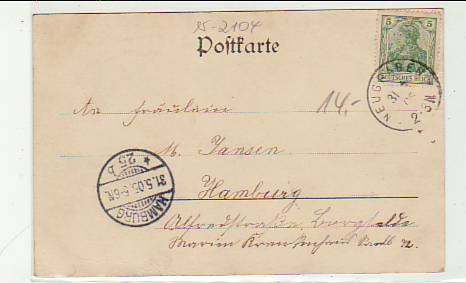 15-2104
Postkarte
5 5
DEUTSCHES REICH
NEUGRABEN
31
2-3N
An Fräulein
14,-
M. Jansen
Hamburg
Alfredstraße Borgfelde
Marien Krankenhaus
HAMBURG
31.5.05.5-6N.
* 25 b